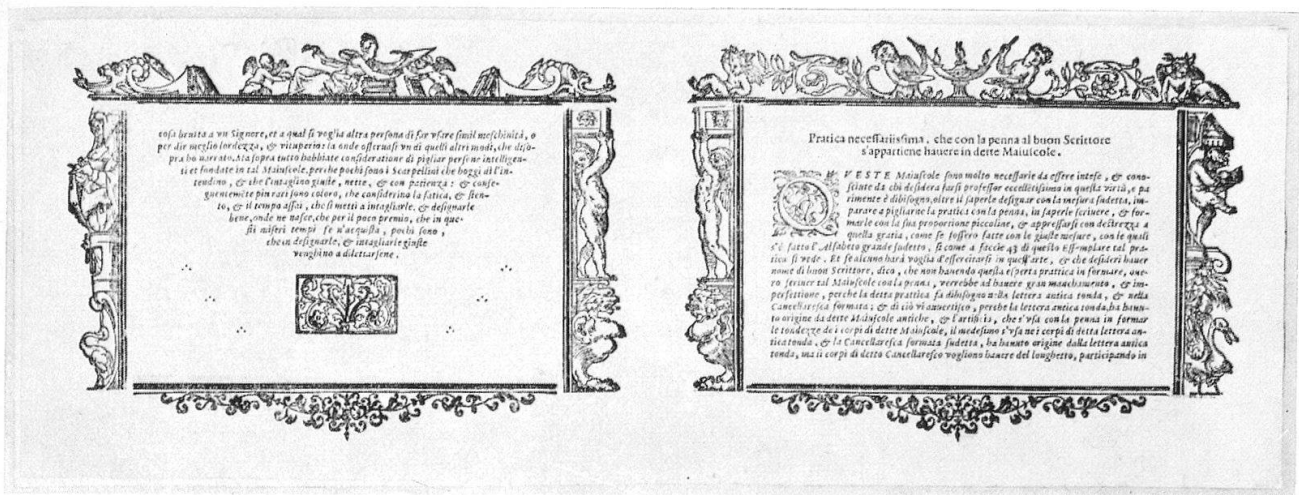 cosa brutta a vn Signore, et a qual si voglia altra persona di far vsare simil meschinità, o
per dir meglio lordezza, & vituperio: la onde osseruasi vn di quelli altri modi, che diso-
pra ho narrato. Ma sopra tutto habbiate consideratione di pigliar persone intelligen-
ti et fondate in tal Maiuscole, perche pochi sono i Scarpellini che hoggi di l'in-
tendino, & che l'intaglino giuste, nette, & con patienza: & conse-
guentemẽte piu rari sono coloro, che considerino la fatica, & sten-
to, & il tempo assai, che si metti a intagliarle, & designarle
bene, onde ne nasce, che per il poco premio, che in que-
sti miseri tempi se n'acquista, pochi sono,
che in designarle, & intagliarle giuste
venghino a dilettarsene.
Pratica necessariissima, che con la penna al buon Scrittore
s'appartiene hauere in dette Maiuscole.
QVESTE Maiuscole sono molto necessarie da essere intese, & cono-
sciute da chi desidera farsi professor eccellẽtissimo in questa virtù, e pa
rimente è dibisogno, oltre il saperle designar con la mesura sudetta, im-
parare a pigliarne la pratica con la penna, in saperle scriuere, & for-
marle con la sua proportione piccoline, & appressarsi con destrezza a
quella gratia, come se fossero fatte con le giuste mesure, con le quali
s'è fatto l'Alfabeto grande sudetto, si come a faccie 43 di questo Essemplare tal pra-
tica si vede. Et se alcuno harà voglia d'essercitarsi in quest'arte, & che desideri hauer
nome di buon Scrittore, dico, che non hauendo questa esperta prattica in formare, oue-
ro scriuere tal Maiuscole con la penna, verrebbe ad hauere gran manchamento, & im-
perfettione, perche la detta prattica fa dibisogno nella lettera antica tonda, & nella
Cancellaresca formata; & di ciò vi auuertisco, perche la lettera antica tonda, ha hauu-
to origine da dette Maiuscole antiche, & l'artificio, che s'vsa con la penna in formar
le tondezze de i corpi di dette Maiuscole, il medesimo s'vsa ne i corpi di detta lettera an-
tica tonda, & la Cancellaresca formata sudetta, ha hauuto origine dalla lettera antica
tonda, ma ii corpi di detto Cancellaresco vogliono hauere del longhetto, participando in